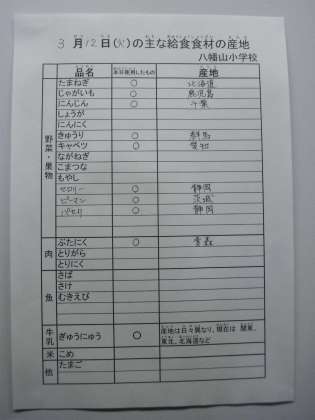 3月12日(火)の主な給食食材の産地
八幡山小学校
品名 本日使用したもの 産地
野菜・果物
たまねぎ ○ 北海道
じゃがいも ○ 鹿児島
にんじん ○ 千葉
しょうが
にんにく
きゅうり ○ 群馬
キャベツ ○ 愛知
ながねぎ
こまつな
もやし
セロリー ○ 静岡
ピーマン ○ 茨城
パセリ ○ 静岡
肉
ぶたにく ○ 青森
とりがら
とりにく
魚
さば
さけ
むきえび
牛乳 ぎゅうにゅう ○ 産地は日々異なり、現在は 関東、
東北、北海道など
米 こめ
他 たまご